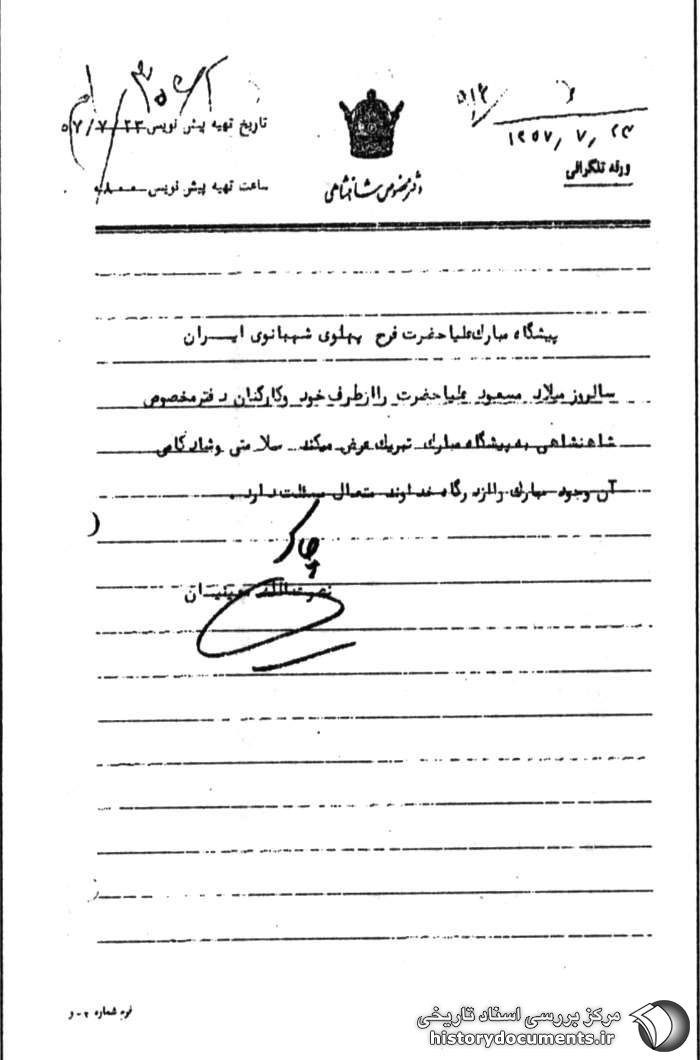 ۱۳۵۷/۷/۲۳
ورقه تلگرافی
دفتر مخصوص شاهنشاهی
تاریخ تهیه پیش نویس ۵۷/۷/۲۳
ساعت تهیه پیش نویس ۸۰۰
پیشگاه مبارک علیاحضرت فرح پهلوی شهبانوی ایران
سالروز میلاد مسعود علیاحضرت را از طرف خود و کارکنان دفتر مخصوص
شاهنشاهی به پیشگاه مبارک تبریک عرض میکند سلامتی و شادکامی
آن وجود مبارک را از درگاه خداوند متعال مسئلت دارد.
نصرت الله معینیان
فرم شماره ۲ - و
مرکز بررسی اسناد تاریخی
historydocuments.ir